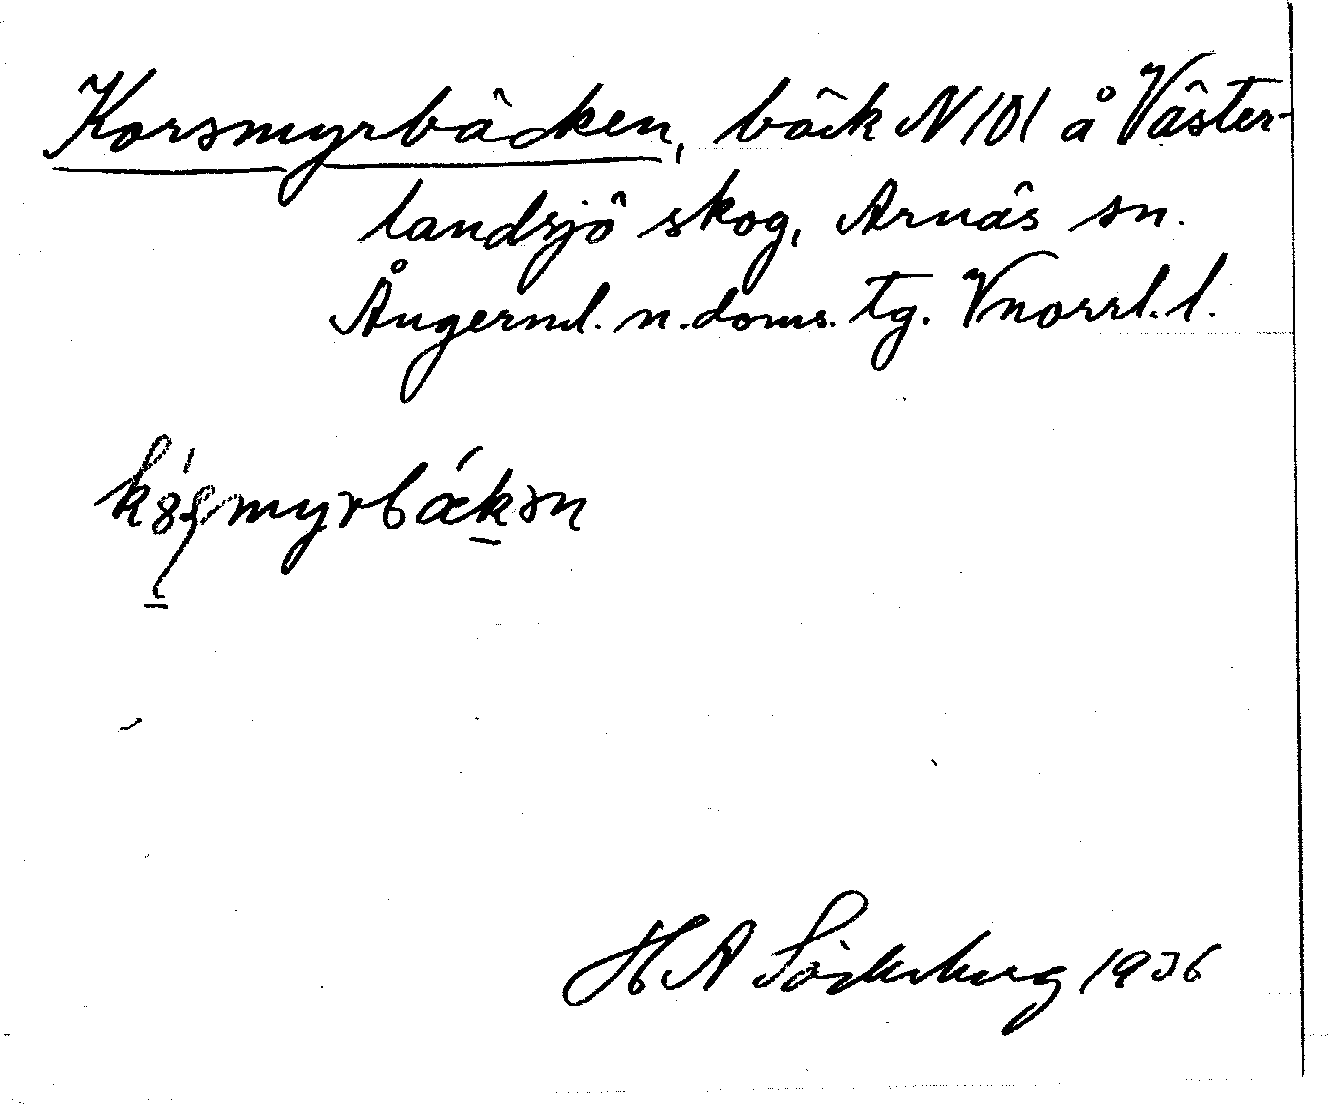 Korsmyrbäcken, bäck N101 å Väster-
landsjö skog, Arnäs sn.
Ångerml. n. doms. tg. Vnorrl. l.
HA Söderberg 1936